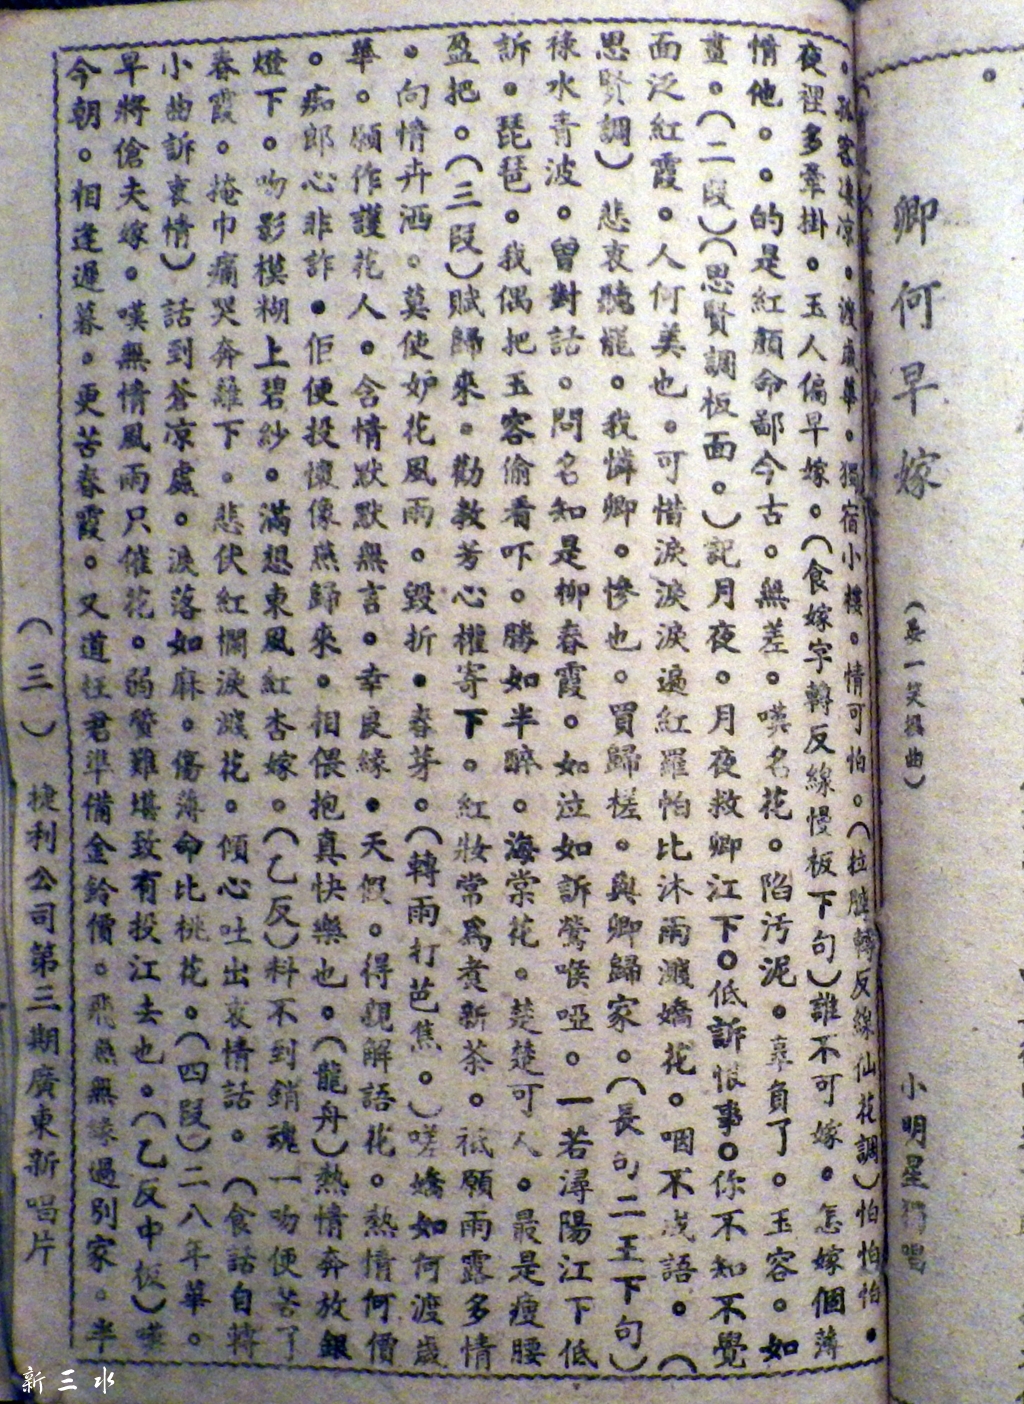 卿何早嫁
小明星獨唱
夜裡多牽掛。玉人偏早嫁。(食嫁字轉反線慢板下句)誰不可嫁。怎嫁個薄
情他。。的是紅顏命鄙今古。無差。嘆名花。陷汚泥。辜負了。玉容。如
畫。(二段)(思賢調板面。)記月夜。月夜救卿江下。低訴恨事。你不知不覺
面泛紅霞。人何美也。可惜淚淚淚遍紅羅怕比沐雨濺嬌花。咽不成語。(
思賢調)悲哀聽罷。我憐卿。慘也。買歸槎。與卿歸家。(長句二王下句)
祿水青波。曾對話。問名知是柳春霞。如泣如訴鶯喉啞。一若潯陽江下低
訴。琵琶。我偶把玉容偷看吓。勝如半醉。海棠花。楚楚可人。最是瘦腰
盈把。(三段)賦歸來。勸教芳心權寄下。紅妝常爲煮新茶。祗願雨露多情
。向情卉洒。莫使妒花風雨。毀折。春芽。(轉雨打芭焦。)嗟嬌如何渡歲
華。願作護花人。含情默默無言。幸良緣。天假。得親解語花。熱情何價
。痴郎心非詐。佢便投懷像燕歸來。相偎抱真快樂也。(龍舟)熱情奔放銀
燈下。吻影模糊上碧紗。滿想東風紅杏嫁。(乙反)料不到銷魂一吻便苦了
春霞。掩巾痛哭奔籬下。悲伏紅欄淚濺花。傾心吐出哀情話。(食話自轉
小曲訴衷情)話到蒼凉處。淚落如麻。傷薄命比桃花。(四段)二八年華。
早將傖夫嫁。嘆無情風雨只催花。弱質難堪致有投江去也。(乙反中板)嘆
今朝。相逢遲暮。更苦春霞。又道枉君準備金鈴價。飛燕無緣過別家。半
(三) 捷利公司第三期廣東新唱片
新三水